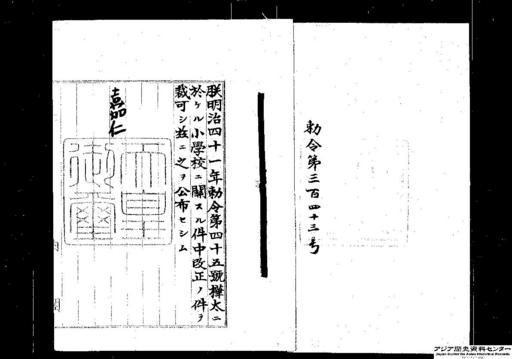 勅令第三百四十三号
朕明治四十一年勅令第四十五號樺太ニ
於ケル小學校ニ關スル件中改正ノ件ヲ
裁可シ茲ニ之ヲ公布セシム
嘉仁
天皇御璽
アジア歴史資料センター
Japan Center for Asian Historical Records